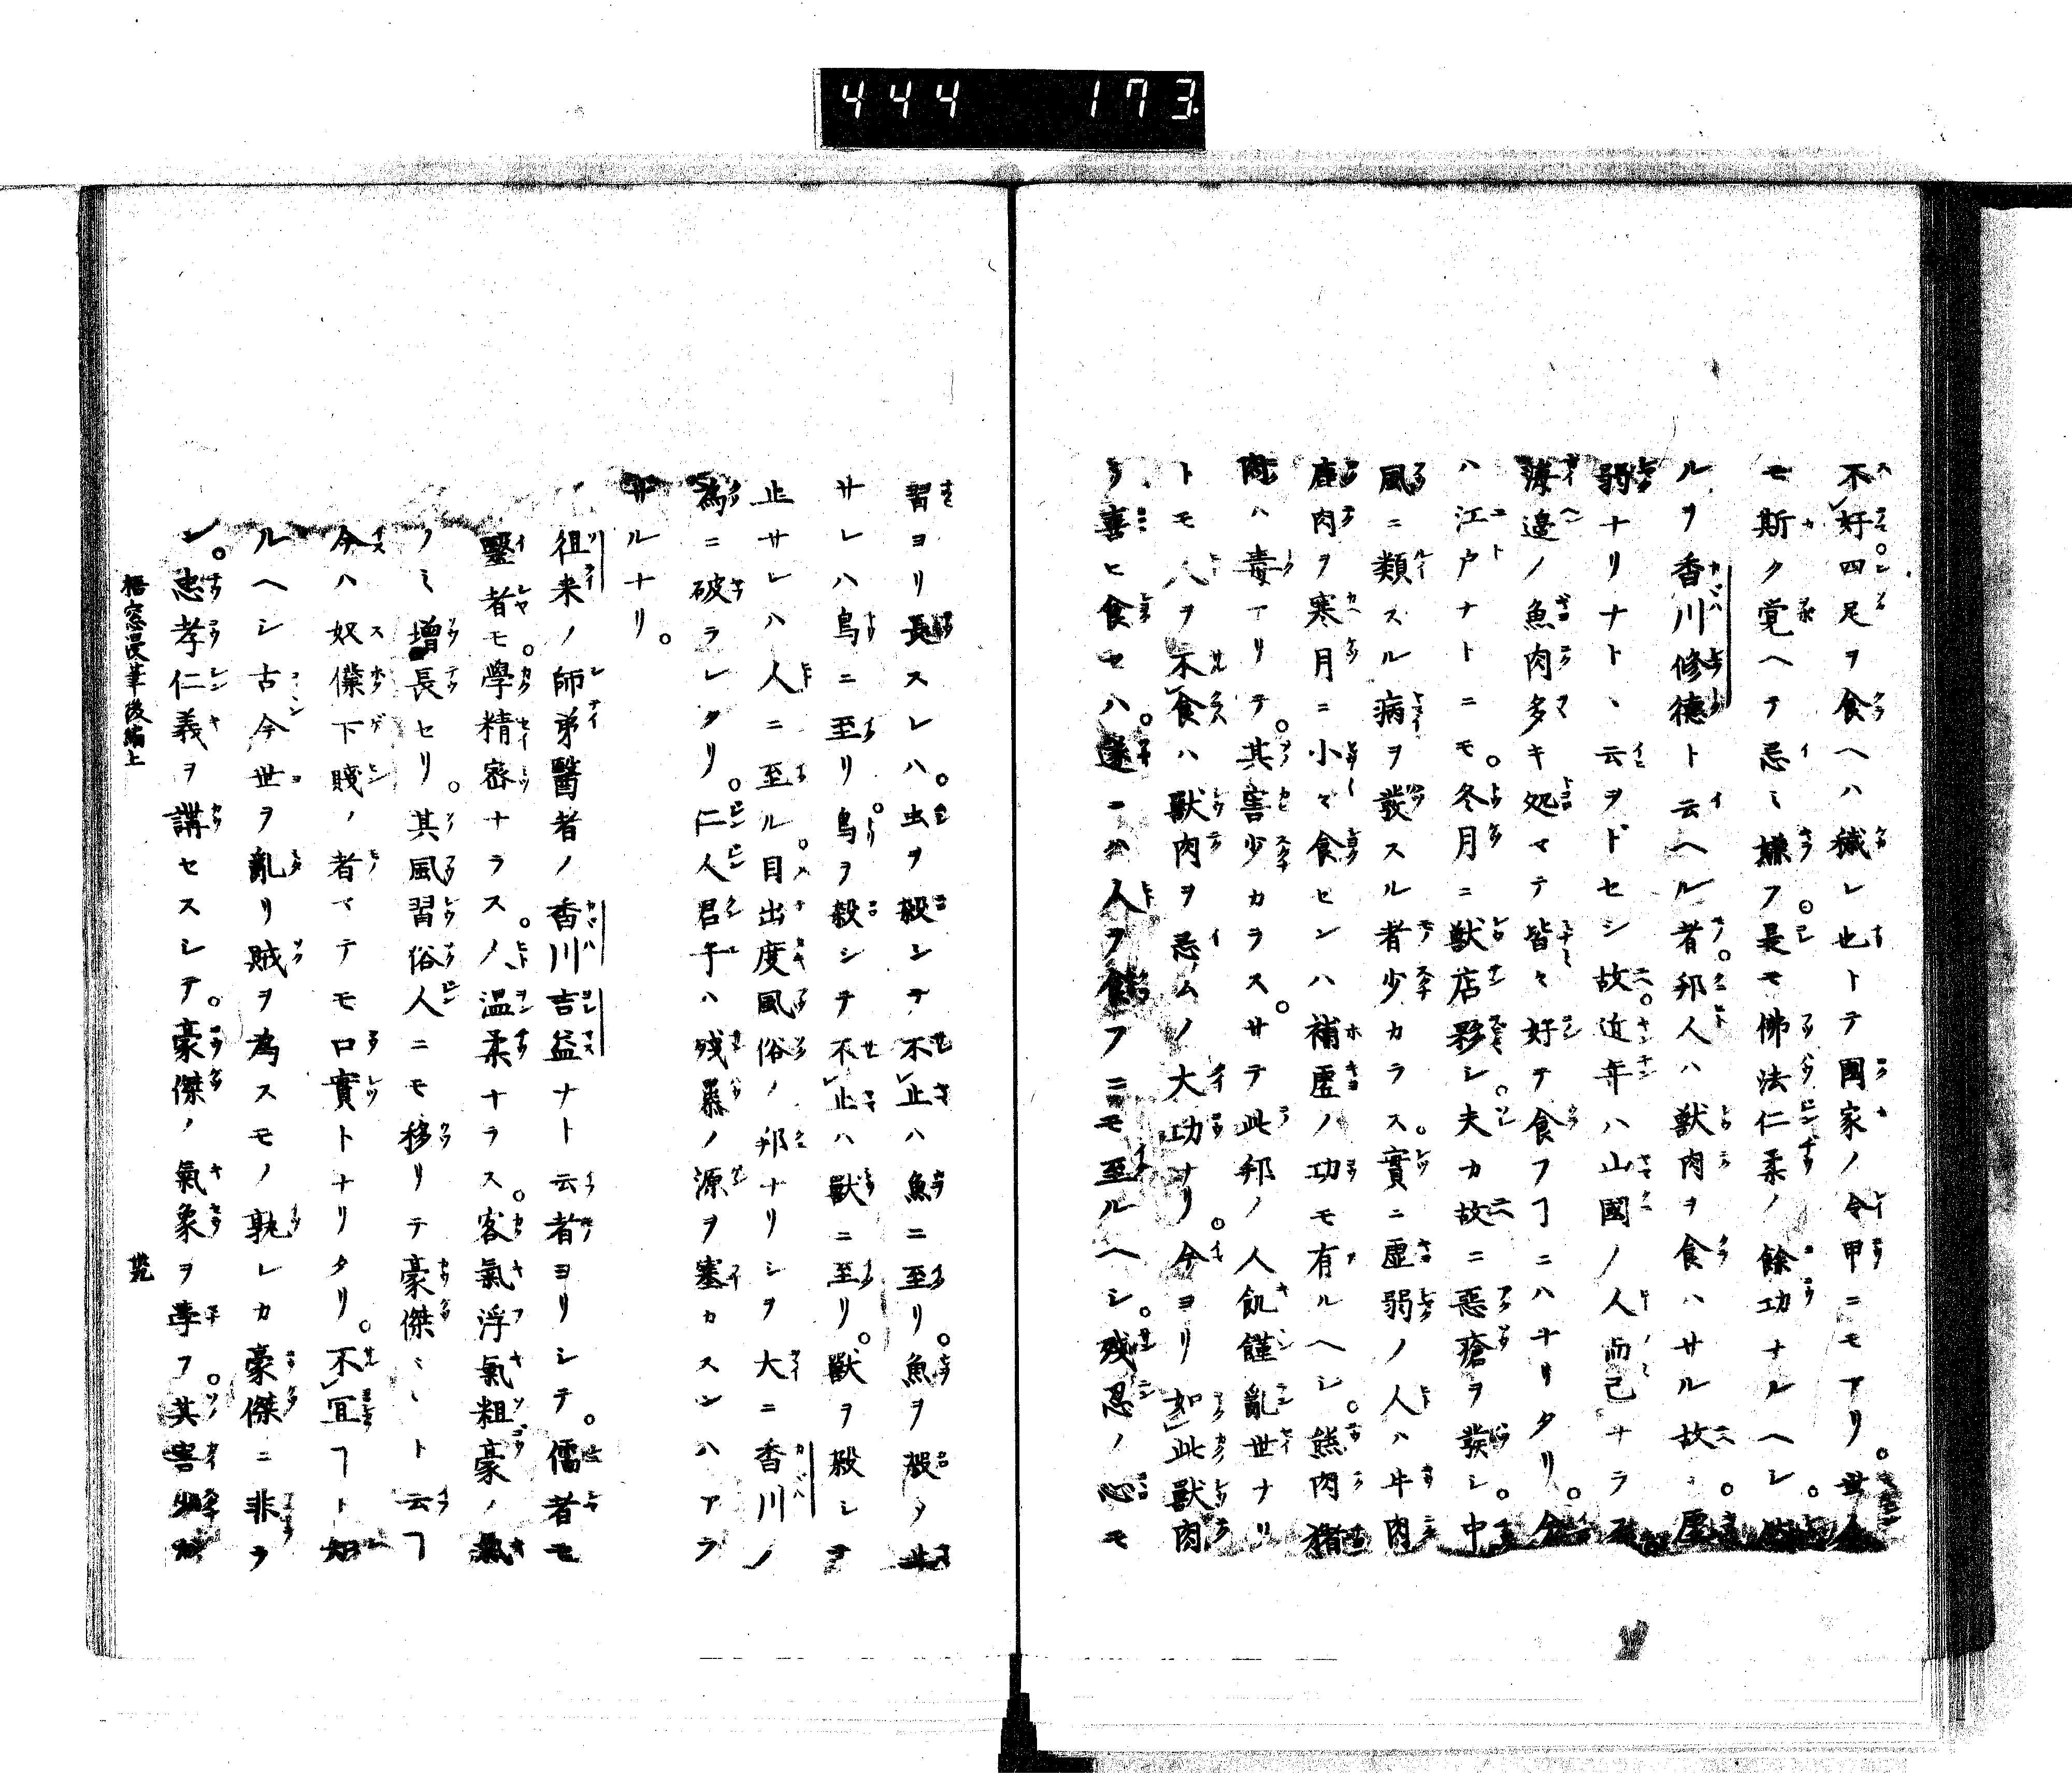 444 173.
不好四足ヲ食ヘハ穢レ也トテ國家ノ令甲ニモアリ。世人
モ斯ク覚ヘテ忌ミ嫌フ。是モ佛法仁柔ノ餘功ナルヘシ。
ルヲ香川修德ト云ヘル者。邦人ハ獣肉ヲ食ハサル故ニ。虚
弱ナリナトヽ云ヲドセシ故ニ。近年ハ山國ノ人而已ナラス
海邉ノ魚肉多キ処マテ皆々好テ食フヿニハナリタリ。今
ハ江戸ナトニモ。冬月ニ獣店夥シ。夫カ故ニ惡瘡ヲ發シ。中
風ニ類スル病ヲ發スル者少カラス。實ニ虚弱ノ人ハ牛肉
鹿肉ヲ寒月ニ小々食センハ補虚ノ功モ有ルヘシ。熊肉猪
肉ハ毒アリテ。其害少カラス。サテ此邦ノ人飢饉亂世ナリ
トモ人ヲ不食ハ獣肉ヲ忌ムノ大功ナリ。今ヨリ如此獣肉
ヲ喜ヒ食セハ。遂ニハ人ヲ食フニモ至ルヘシ。残忍ノ心モ
習ヨリ長スレハ。虫ヲ殺シテ不止ハ魚ニ至リ。魚ヲ殺シテ
サレハ鳥ニ至リ。鳥ヲ殺シテ不止ハ獣ニ至リ。獣ヲ殺シテ
止サレハ人ニ至ル。目出度風俗ノ邦ナリシヲ大ニ香川ノ
為ニ破ラレタリ。仁人君子ハ残暴ノ源ヲ塞カスンハアラ
サルナリ。
徂来ノ師弟醫者ノ香川吉益ナト云者ヨリシテ。儒者モ
醫者モ。學精密ナラス。人温柔ナラス。客氣浮氣粗豪ノ氣
ノミ増長セリ。其風習俗人ニモ移リテ豪傑ミヽト云ヿ
今ハ奴僕下賤ノ者マテモ口實トナリタリ。不宜ヿト知
ルヘシ古今世ヲ亂リ賊ヲ為スモノ孰レカ豪傑ニ非ラ
ン。忠孝仁義ヲ講セスシテ。豪傑ノ氣象ヲ學フ。其害少カ
梧窓漫筆後編上